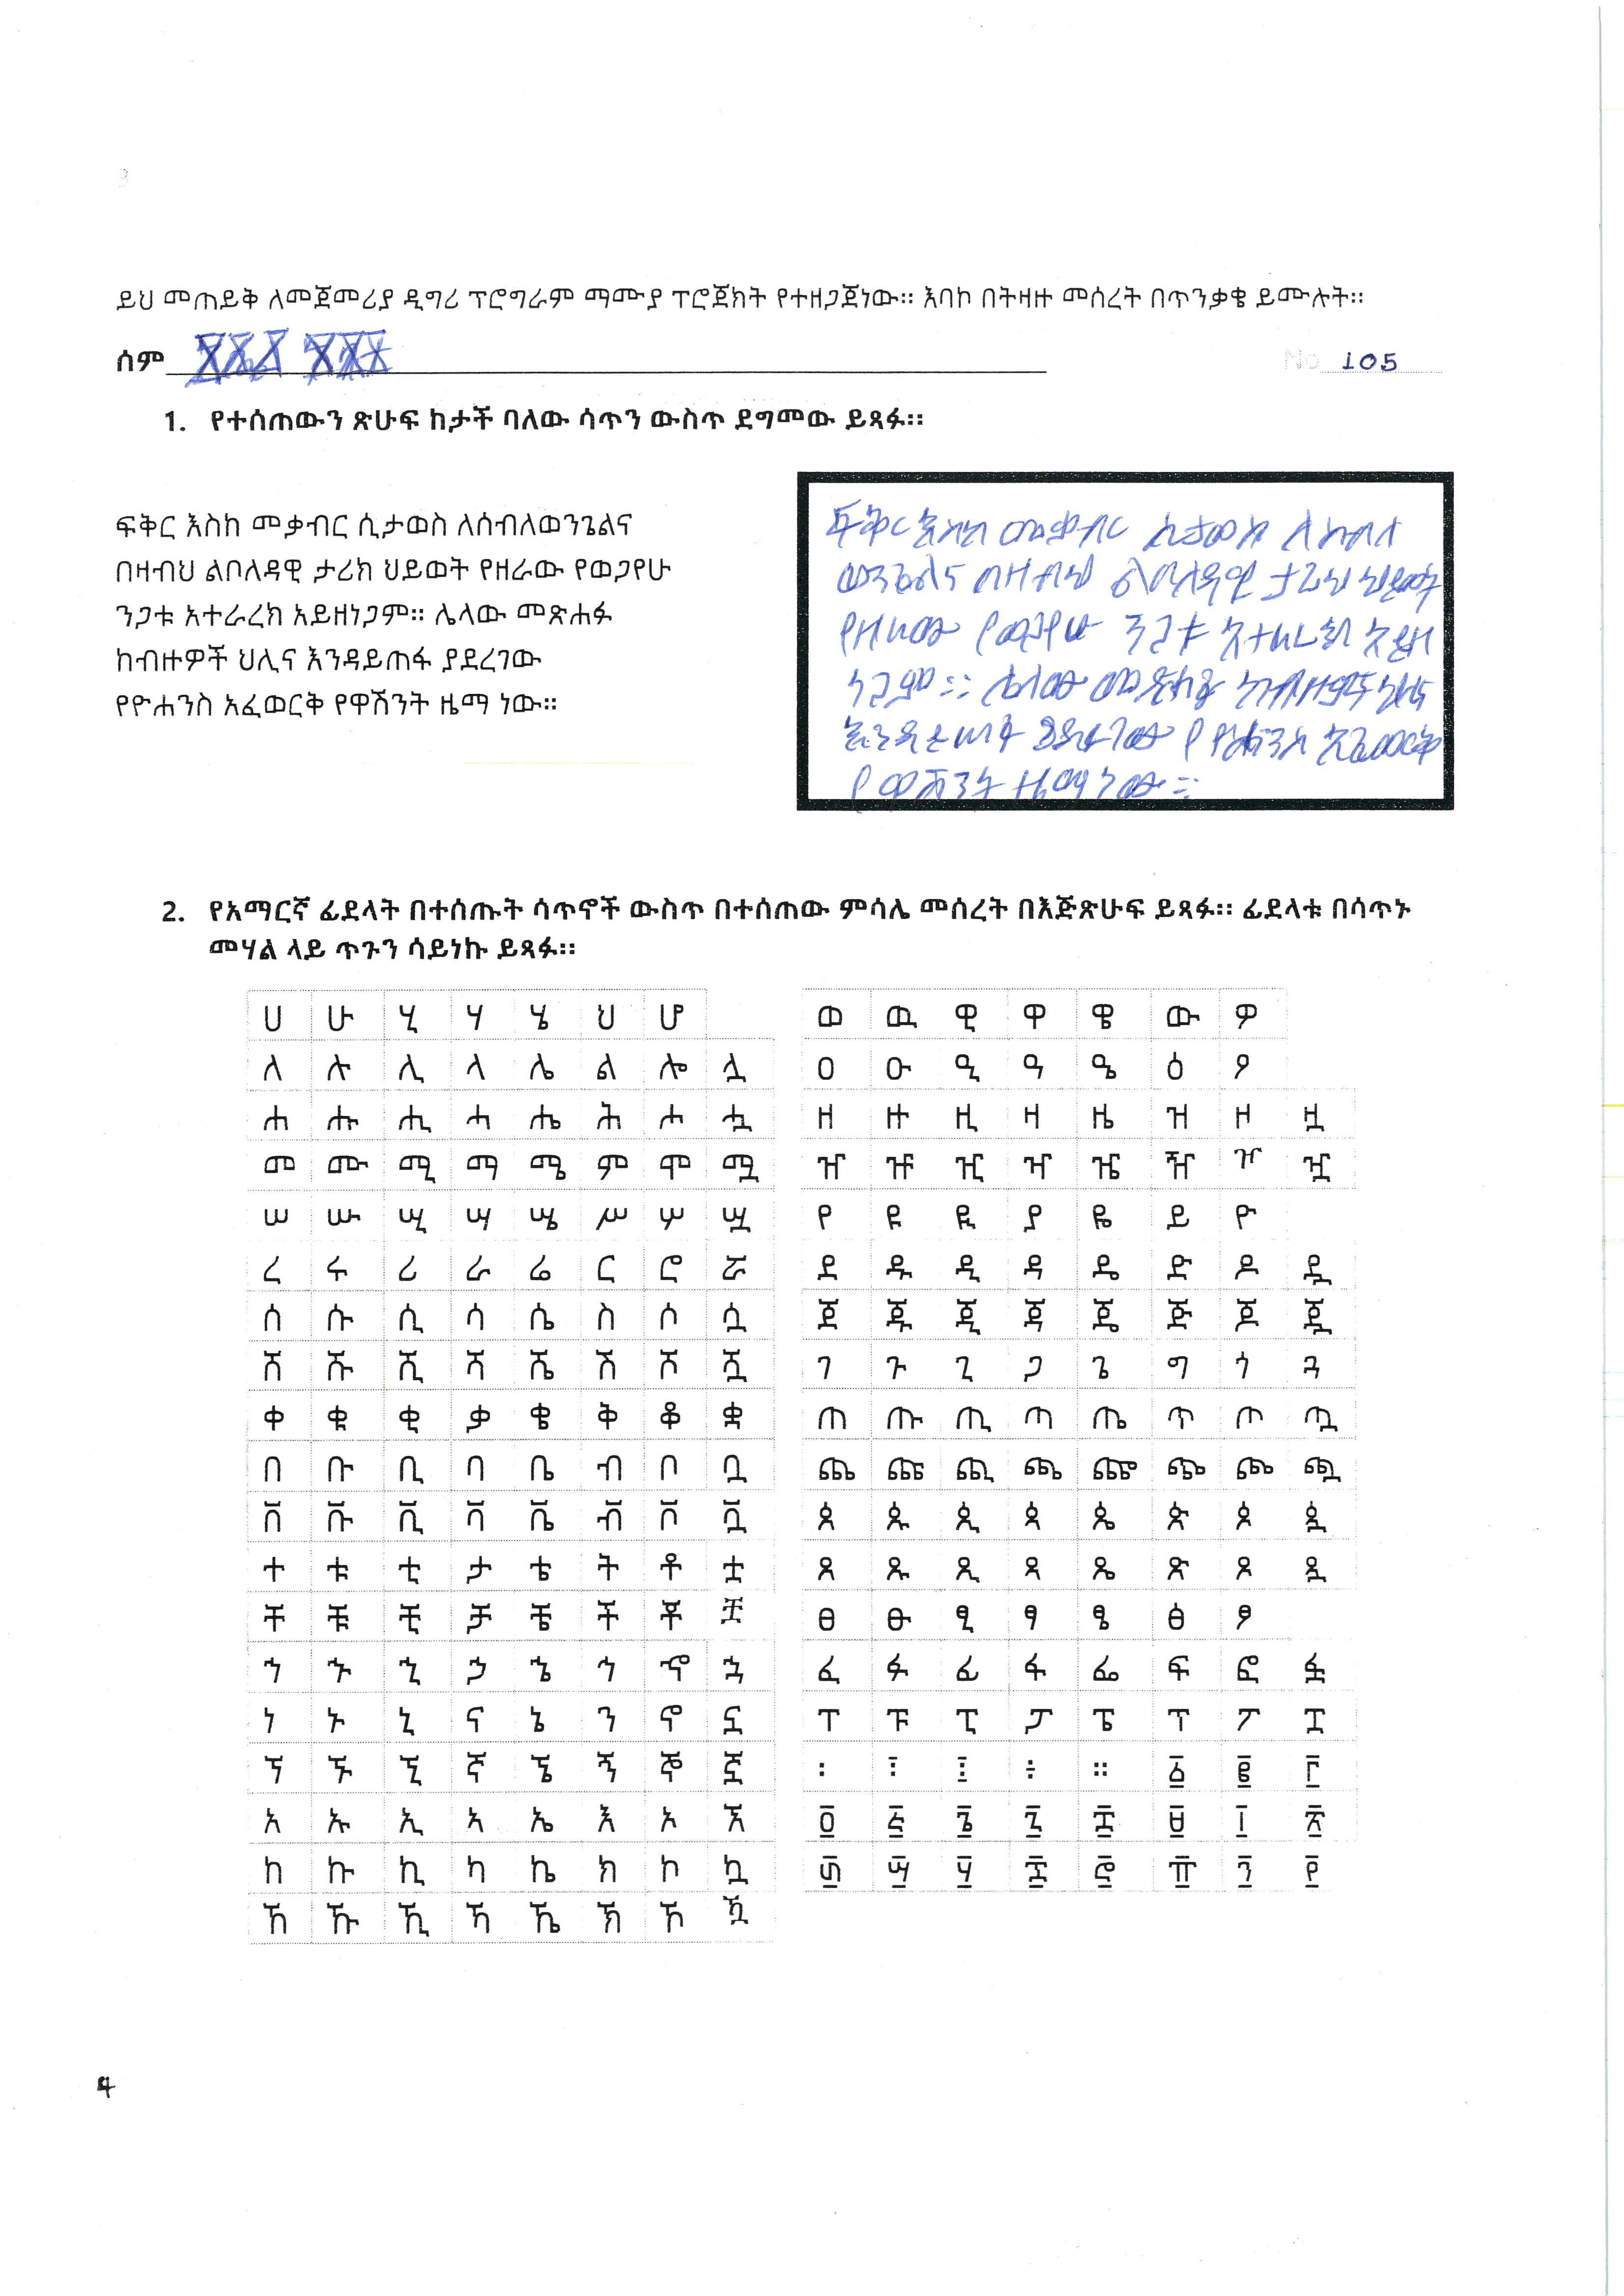 ይህ መጠይቅ ለመጀመሪያ ዲግሪ ፕሮግራም ማሙያ ፕሮጀክት የተዘጋጀነው። እባኮ በትዛዙ መሰረት በጥንቃቄ ይሙሉት።
ሰም
No 105
1. የተሰጠውን ጽሁፍ ከታች ባለው ሳጥን ውስጥ ደግመው ይጻፉ።
ፍቅር እስከ መቃብር ሲታወስ ለሰብለወንጌልና
በዛብህ ልቦለዳዊ ታሪክ ህይወት የዘራው የወጋየሁ
ንጋቱ አተራረክ አይዘነጋም። ሌላው መጽሐፉ
ከብዙዎች ህሊና እንዳይጠፋ ያደረገው
የዮሐንስ አፈወርቅ የዋሽንት ዜማ ነው።
ፍቅር እስከ መቃብር ሲታወስ ለሰብለ
ወንጌልና በዛብህ ልቦለዳዊ ታሪክ ህይወት
የዘራው የወጋየሁ ንጋቱ አተራረክ አይዘ
ነጋም። ሌላው መጽሐፉ ከብዙዎች ህሊና
ያደረገው የዮሐንስ አፈወርቅ
የዋሽንት ዜማ ነው።
2. የአማርኛ ፊደላት በተሰጡት ሳጥኖች ውስጥ በተሰጠው ምሳሌ መሰረት በእጅጽሁፍ ይጻፉ። ፊደላቱ በሳጥኑ
መሃል ላይ ጥጉን ሳይነኩ ይጻፉ።
ሀ ሁ ሂ ሃ ሄ ህ ሆ
ለ ሉ ሊ ላ ሌ ል ሎ ሏ
ሐ ሑ ሒ ሓ ሔ ሕ ሖ ሗ
መ ሙ ሚ ማ ሜ ም ሞ ሟ
ሠ ሡ ሢ ሣ ሤ ሥ ሦ ሧ
ረ ሩ ሪ ራ ሬ ር ሮ ሯ
ሰ ሱ ሲ ሳ ሴ ስ ሶ ሷ
ሸ ሹ ሺ ሻ ሼ ሽ ሾ ሿ
ቀ ቁ ቂ ቃ ቄ ቅ ቆ ቋ
በ ቡ ቢ ባ ቤ ብ ቦ ቧ
ቨ ቩ ቪ ቫ ቬ ቭ ቮ ቯ
ተ ቱ ቲ ታ ቴ ት ቶ ቷ
ቸ ቹ ቺ ቻ ቼ ች ቾ ቿ
ኀ ኁ ኂ ኃ ኄ ኅ ኆ ኋ
ነ ኑ ኒ ና ኔ ን ኖ ኗ
ኘ ኙ ኚ ኛ ኜ ኝ ኞ ኟ
አ ኡ ኢ ኣ ኤ እ ኦ ኧ
ከ ኩ ኪ ካ ኬ ክ ኮ ኳ
ኸ ኹ ኺ ኻ ኼ ኽ ኾ ዃ
ወ ዉ ዊ ዋ ዌ ው ዎ
ዐ ዑ ዒ ዓ ዔ ዕ ዖ
ዘ ዙ ዚ ዛ ዜ ዝ ዞ ዟ
ዠ ዡ ዢ ዣ ዤ ዥ ዦ ዧ
የ ዩ ዪ ያ ዬ ይ ዮ
ደ ዱ ዲ ዳ ዴ ድ ዶ ዷ
ጀ ጁ ጂ ጃ ጄ ጅ ጆ ጇ
ገ ጉ ጊ ጋ ጌ ግ ጎ ጓ
ጠ ጡ ጢ ጣ ጤ ጥ ጦ ጧ
ጨ ጩ ጪ ጫ ጬ ጭ ጮ ጯ
ጰ ጱ ጲ ጳ ጴ ጵ ጶ ጷ
ጸ ጹ ጺ ጻ ጼ ጽ ጾ ጿ
ፀ ፁ ፂ ፃ ፄ ፅ ፆ
ፈ ፉ ፊ ፋ ፌ ፍ ፎ ፏ
ፐ ፑ ፒ ፓ ፔ ፕ ፖ ፗ
፡ ፤ ፧ ፥ ። ፩ ፪ ፫
፬ ፭ ፮ ፯ ፰ ፱ ፲ ፳
፴ ፵ ፶ ፷ ፸ ፹ ፺ ፻
4